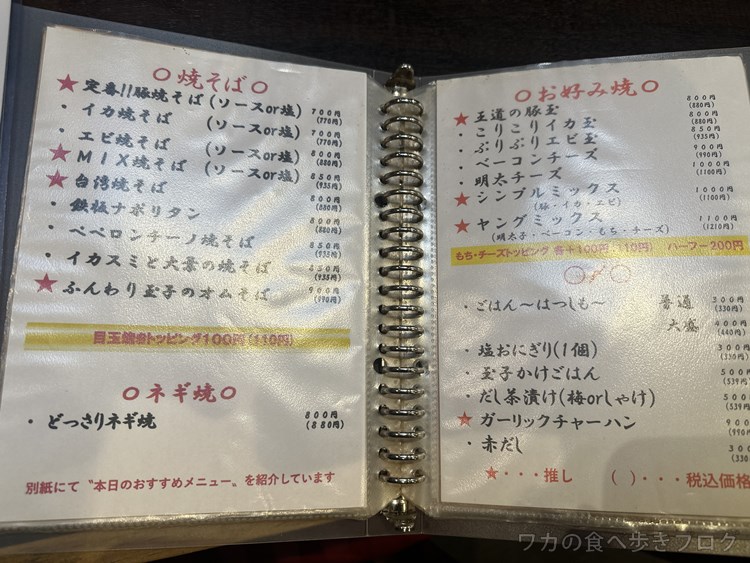 ○焼そば○
★定番!!豚焼そば(ソースor塩) 700円(770円)
・イカ焼そば (ソースor塩) 700円(770円)
・エビ焼そば (ソースor塩) 800円(880円)
★MIX焼そば (ソースor塩) 850円(935円)
★台湾焼そば 800円(880円)
・鉄板ナポリタン 800円(880円)
・ペペロンチーノ焼そば 850円(935円)
・イカスミと大葉の焼そば 850円(935円)
★ふんわり玉子のオムそば 900円(990円)
目玉焼きトッピング100円(110円)
○ネギ焼○
・どっさりネギ焼 800円(880円)
別紙にて〝本日のおすすめメニュー〟を紹介しています
○お好み焼○
★王道の豚玉 800円(880円)
・こりこりイカ玉 800円(880円)
・ぷりぷりエビ玉 850円(935円)
・ベーコンチーズ 900円(990円)
・明太チーズ 1000円(1100円)
★シンプルミックス 1000円(1100円)
(豚・イカ・エビ)
★ヤングミックス 1100円(1210円)
(明太子・ベーコン・もち・チーズ)
もち・チーズトッピング 各+100円(110円) ハーフー200円
・ごはん〜はつしも〜 普通 300円(330円)
大盛 400円(440円)
・塩おにぎり(1個) 300円(330円)
・玉子かけごはん 500円(539円)
・だし茶漬け(梅orしゃけ) 500円(539円)
★ガーリックチャーハン 900円(990円)
・赤だし 300円(330
★・・・推し ( )・・・税込価格
ワカの食べ歩きブログ